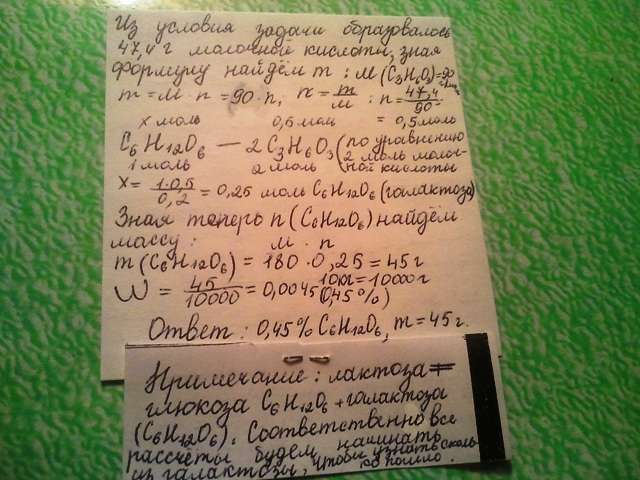 Из условия задачи образовалось
47,4 г молочной кислоты, зная
формулу найдём m : M (C3H6O3)=90
m = M · n = 90 · n, n = m/M : n = 47,4/90 = 0,5 моль
x моль 0,5 моль
C6H12O6 — 2C3H6O3 (по уравнению
2 моль молоч-
1 моль 2 моль ной кислоты
x = 1·0,5/0,2 = 0,25 моль C6H12O6 (галактоза)
Зная теперь n (C6H12O6) найдём
массу : M · n
m (C6H12O6) = 180 · 0,25 = 45 г
10кг = 10000 г
W = 45/10000 = 0,0045 (0,45 %)
Ответ : 0,45% C6H12O6, m = 45 г.
Примечание : лактоза =
глюкоза C6H12O6 + галактоза
(C6H12O6). Соответственно все
рассчёты будем начинать
из галактозы, чтобы узнать сколь
ко пошло.